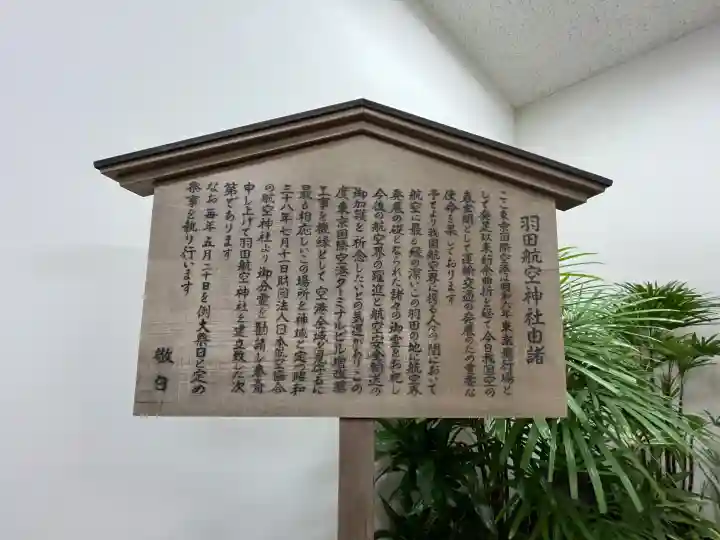 羽田航空神社由諸
ここ東京国際空港は昭和六年東京飛行場と
して発足以来紆余曲折を経て今日我国空の
表玄関として運輸交通の発展のため重要な
使命を果しております
予てより我国航空界に携る人々の間において
航空に最も縁の深いこの羽田の地に航空界
発展の礎となられた諸々の御霊をお祀し
今後の航空界の躍進と航空安全輸送の
御加護を祈念したいとの気運があり この
度東京国際空港ターミナルビル増改築
工事を機縁として 空港全域を見守るに
最も相応しいこの場所を神域と定め昭和
三十八年七月十一日財団法人日本航空協会
の航空神社より御分霊を勧請し奉斎
申し上げて羽田航空神社を建立致した次
第であります
なお毎年五月二十日を例大祭日と定め
祭事を執り行います
敬白